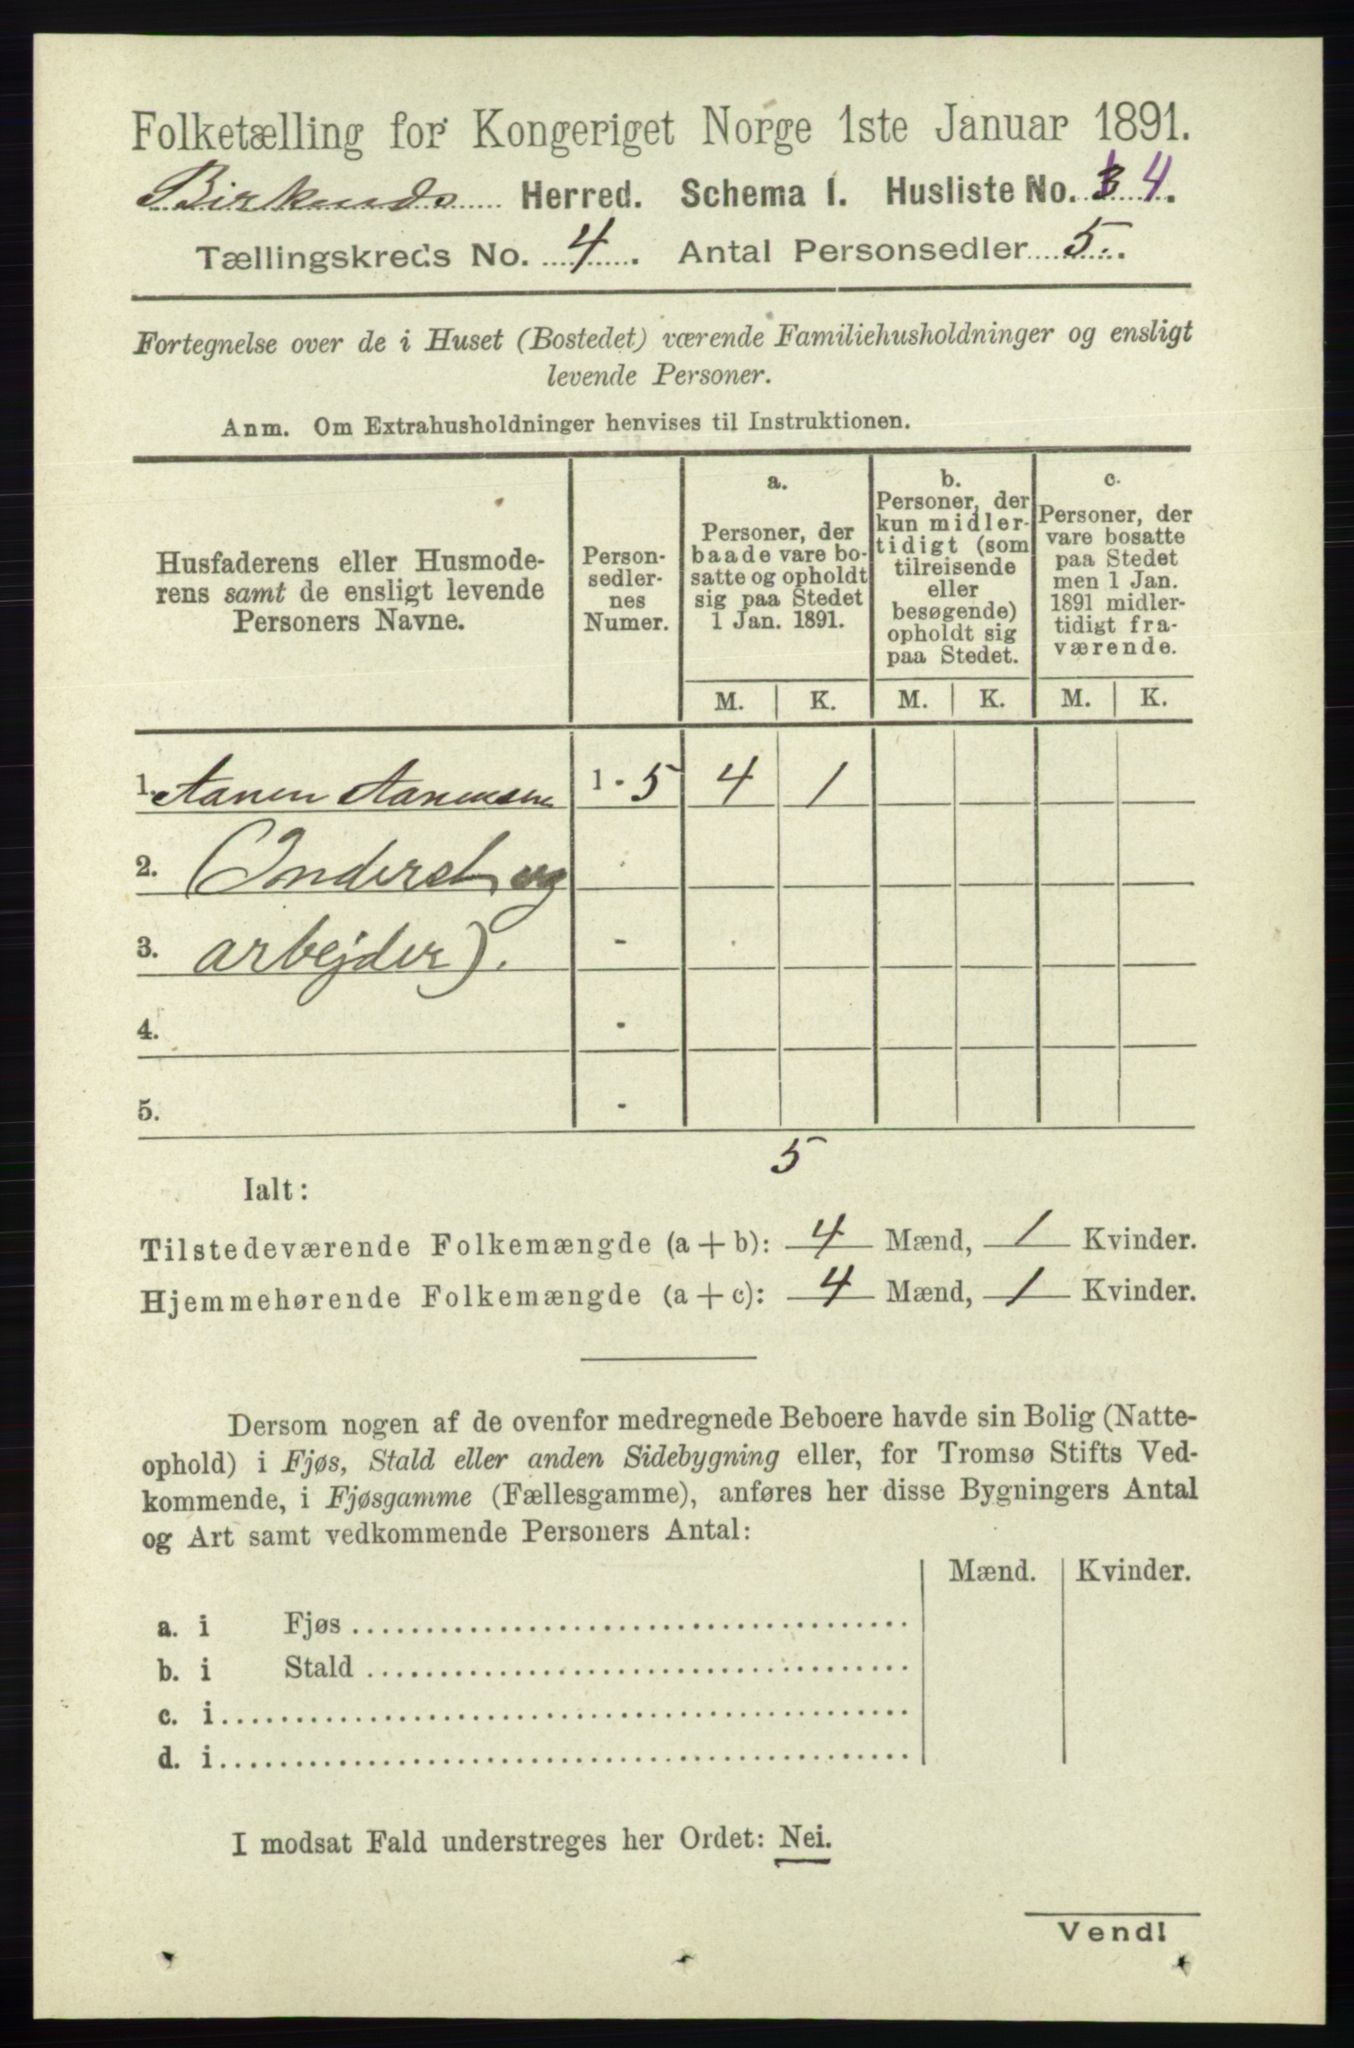 Folketælling for Kongeriget Norge 1ste Januar 1891.
Birkenes Herred. Schema I. Husliste No. 4.
Tællingskreds No. 4. Antal Personsedler 5.
Fortegnelse over de i Huset (Bostedet) værende Familiehusholdninger og ensligt
levende Personer.
Anm. Om Extrahusholdninger henvises til Instruktionen.
Husfaderens eller Husmode-
rens samt de ensligt levende
Personers Navne.
Person-
sedler-
nes
Numer.
a.
Personer, der
baade vare bo-
satte og opholdt
sig paa Stedet
1 Jan. 1891.
b.
Personer, der
kun midler-
tidigt (som
tilreisende
eller
besøgende)
opholdt sig
paa Stedet.
c.
Personer, der
vare bosatte
paa Stedet
men 1 Jan.
1891 midler-
tidigt fra-
værende.
M. K. M. K. M. K.
1. Aanen Aanensen 1 - 5 4 1
2. (Inderst og -
3. arbejder). -
4. -
5. -
5
Ialt:
Tilstedeværende Folkemængde (a + b): 4 Mænd, 1 Kvinder.
Hjemmehørende Folkemængde (a + c): 4 Mænd, 1 Kvinder.
Dersom nogen af de ovenfor medregnede Beboere havde sin Bolig (Natte-
ophold) i Fjøs, Stald eller anden Sidebygning eller, for Tromsø Stifts Ved-
kommende, i Fjøsgamme (Fællesgamme), anføres her disse Bygningers Antal
og Art samt vedkommende Personers Antal:
Mænd. Kvinder.
a. i Fjøs
b. i Stald
c. i
d. i
I modsat Fald understreges her Ordet: Nei.
Vend!